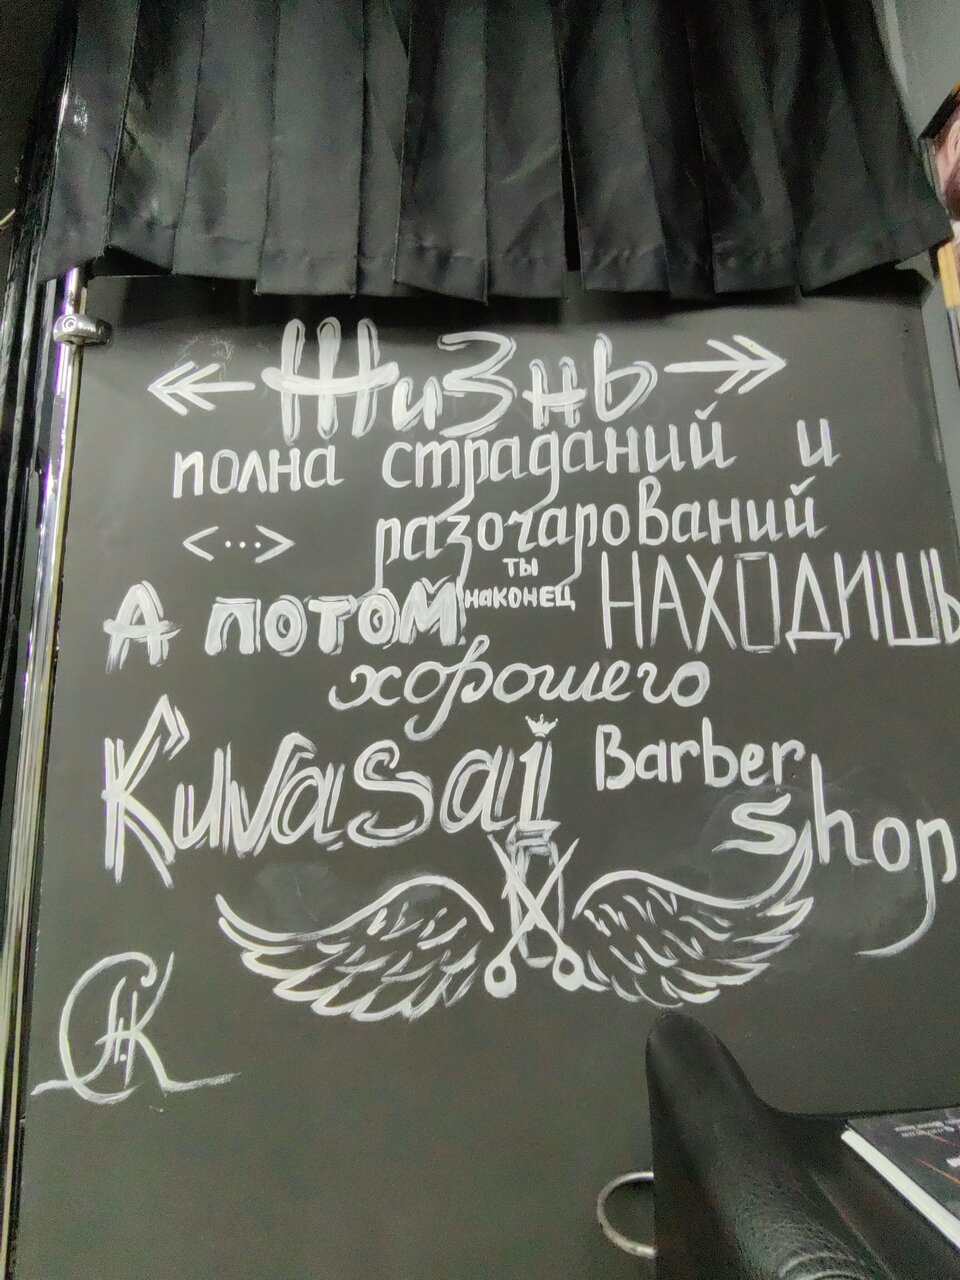 Жизнь
полна страданий и
<...> разочарований
А потом ты наконец НАХОДИШЬ
хорошего
Kuvasai Barber
Shop